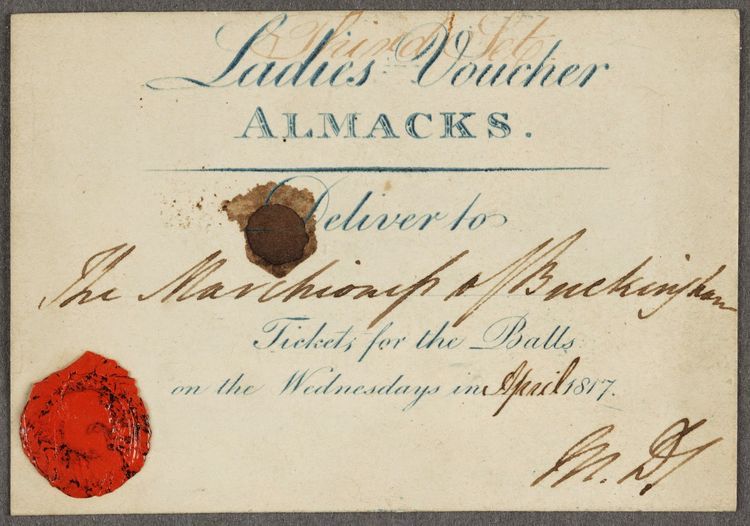 Third Set
Ladies Voucher
ALMACKS.
Deliver to
The Marchioness of Buckingham
Tickets for the Balls
on the Wednesdays in April 1817.